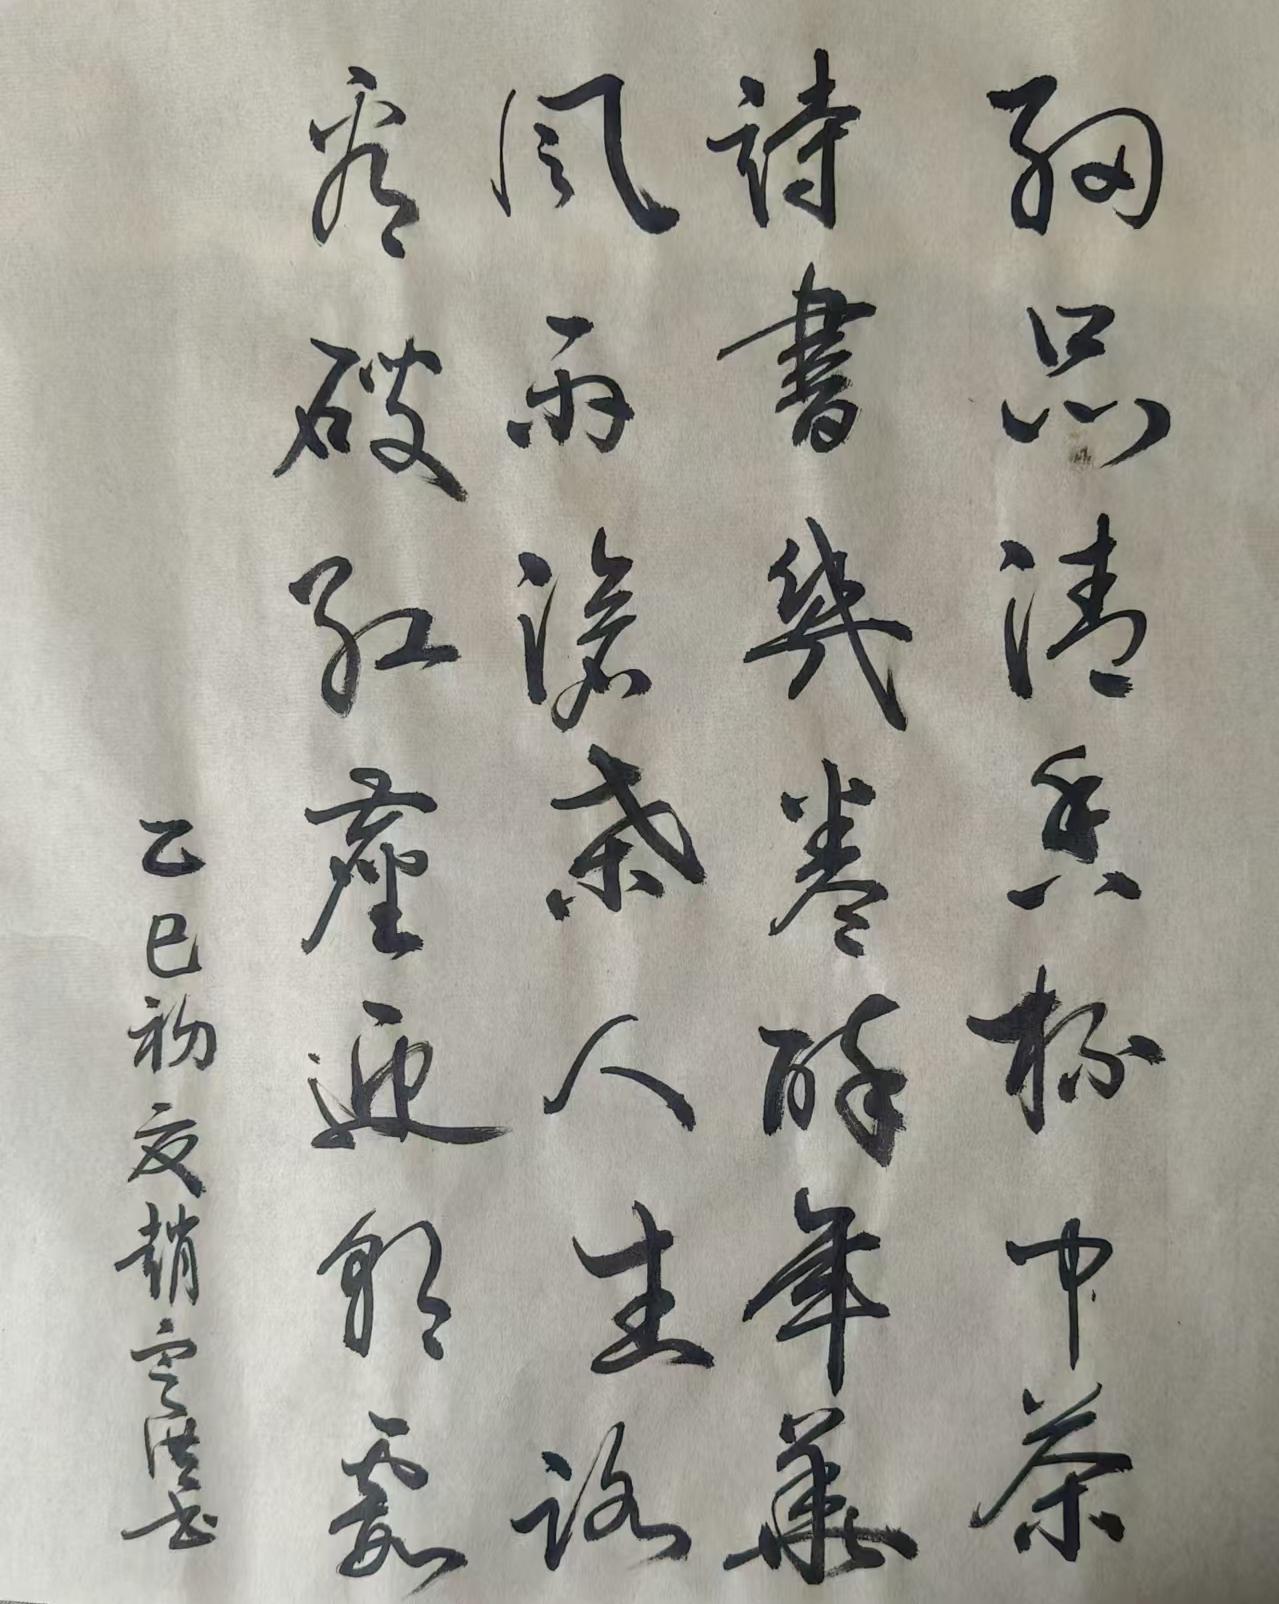 細品清香杯中茶
詩書幾卷醉年華
風雨滄桑人生路
看破紅塵迎朝霞
乙巳初夏趙雲洪书